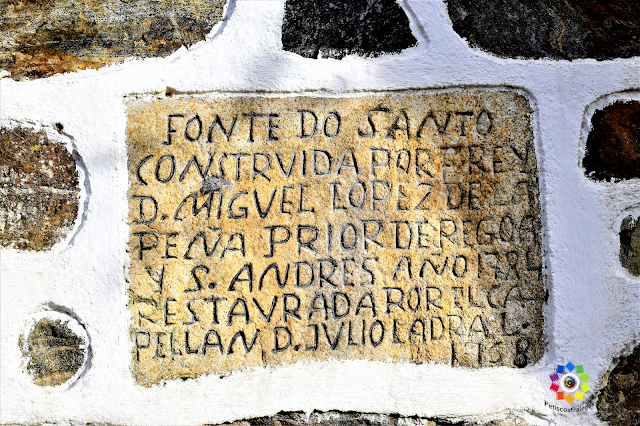 FONTE DO SANTO
CONSTRVIDA POR FREY
D. MIGVEL LOPEZ DE LA
PEÑA PRIOR DE REGOA
Y S. ANDRES AÑO
RESTAVRADA POR EL CA
PELLAN D. JVLIO LADRA L.